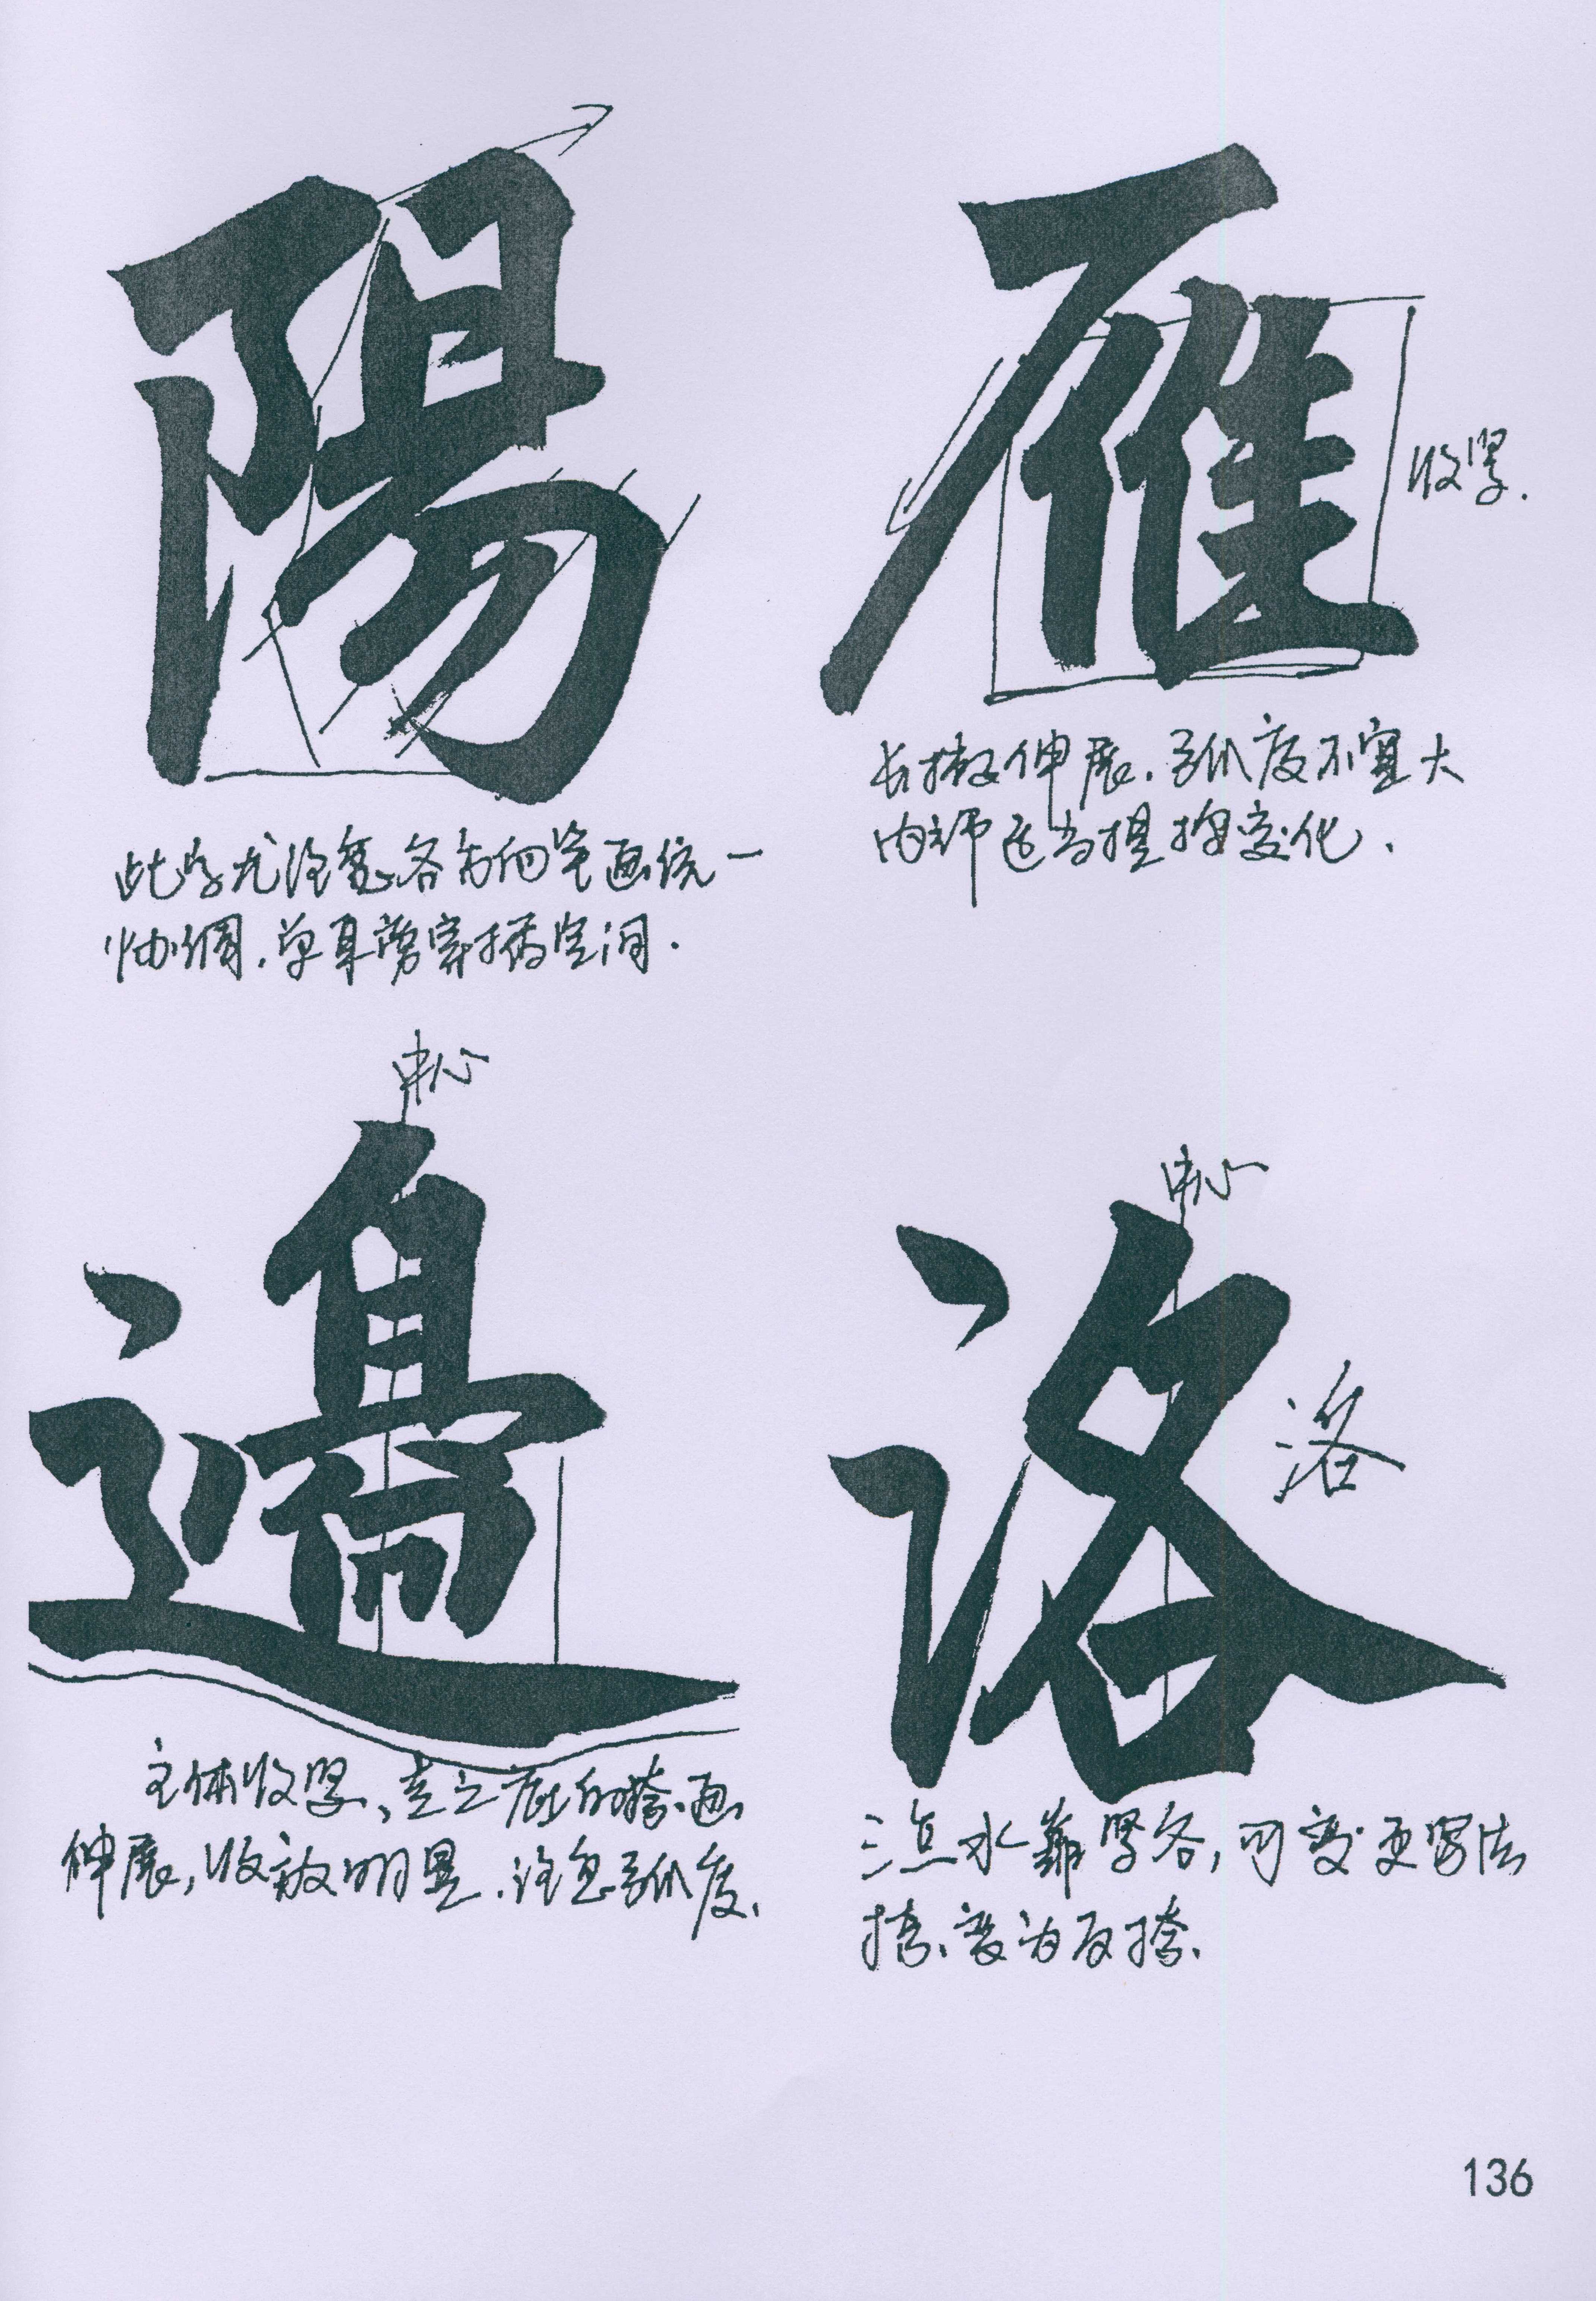 陽
此字尤注意各方向笔画统一
协调.单耳旁穿插空间.
雁
收紧.
长撇伸展.弧度不宜大
内部适当提按变化.
中心
邊
主体收紧、走之底的捺画
伸展,收放明显.注意弧度、
中心
洛
洛
三点水靠紧各,可变更写法
捺、变为反捺、
136